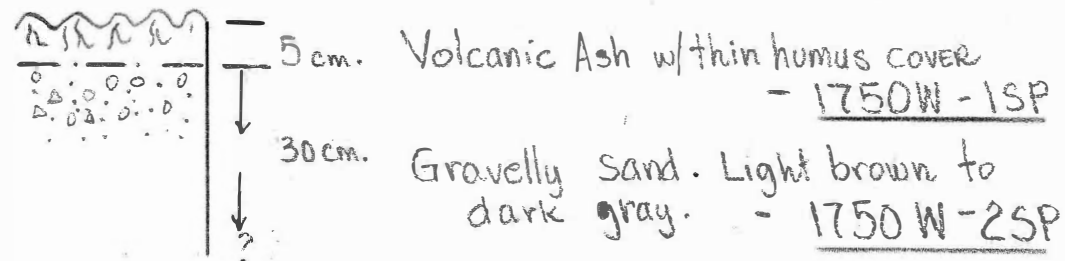 5 cm. Volcanic Ash w/ thin humus cover
- 1750W-1SP
30 cm. Gravelly sand. Light brown to
dark gray. - 1750W-2SP
?